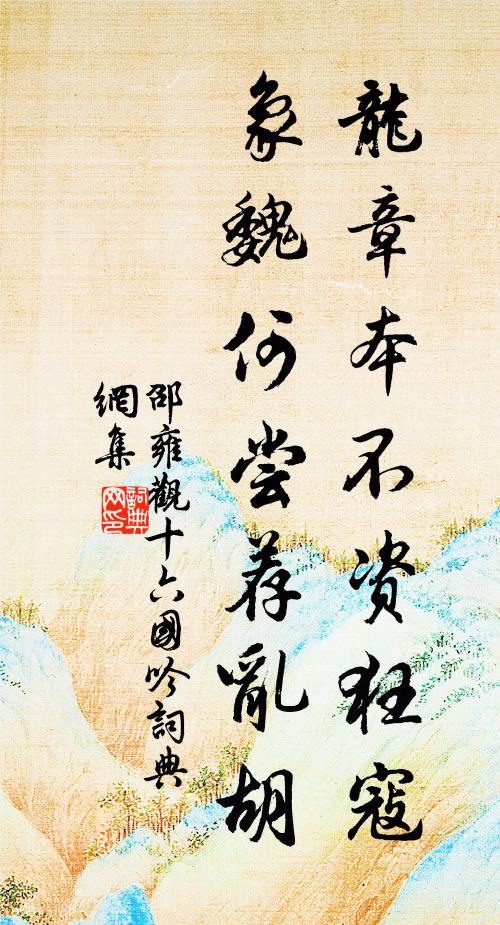 龍章本不資狂寇
象魏何嘗荐亂胡
邵雍觀十六國吟詞典
網集
詞典
网印